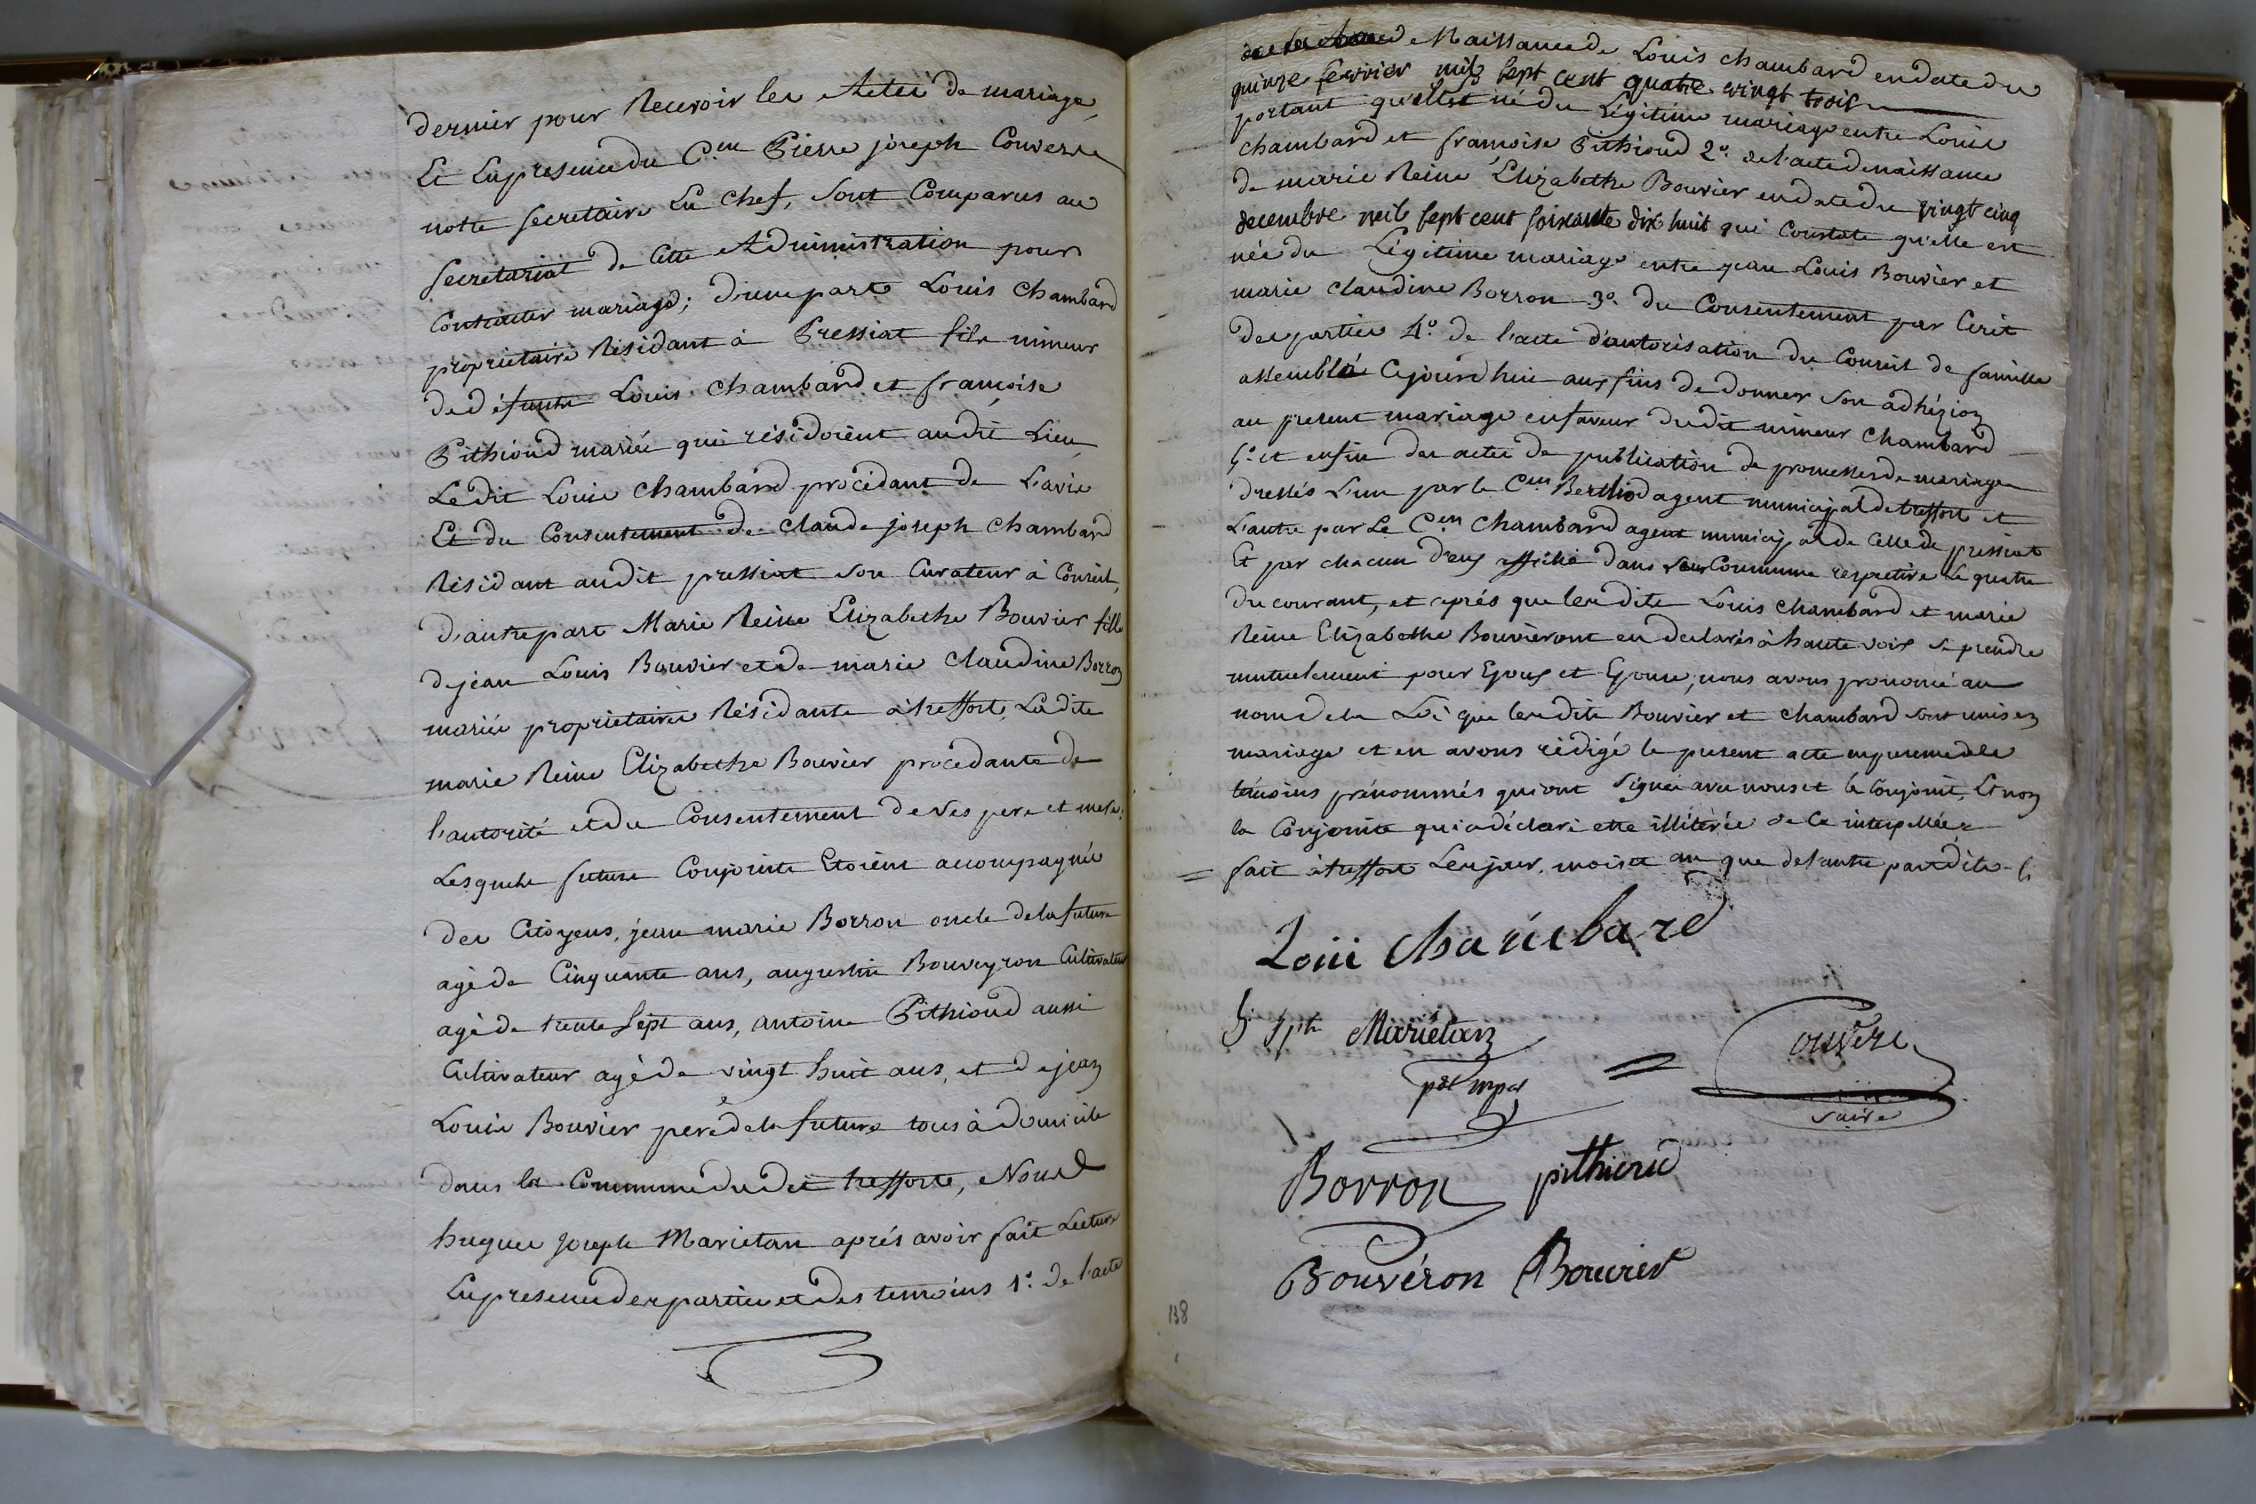 dernier pour Recevoir les Actes de mariage,
Et En presence du C.en Pierre joseph Converse
notte Secretaire En chef, Sont Comparus au
Secretariat de Cette Administration pour
Contracter mariage; d'une part Louis Chambard
proprietaire Résidant à Pressiat fils mineur
de défunts Louis Chambard et françoise
Pithioud mariés qui résidoient audit Lieu,
Le dit Louis Chambard procédant de L'avis
Et du Consentement de Claude joseph Chambard
Résidant audit pressiat son Curateur à Conseil,
d'autre part Marie Reine Elizabethe Bouvier fille
de jean Louis Bouvier et de marie Claudine Borron
mariés proprietaires Résidants à treffort, La dite
marie Reine Elizabethe Bouvier procédante de
l'autorité et du Consentement de ses pere et mere;
Lesquels futurs Conjoints Etoient accompagnés
des Citoyens, jean marie Borron oncle de la future
agé de Cinquante ans, augustin Bouveyron Cultivateur
agé de trente Sept ans, antoine Pithioud aussi
Cultivateur agé de vingt huit ans, et de jean
Louis Bouvier pere de la future tous à domicile
dans la Commune dudit treffort, Nous
hugues Joseph Marietan aprés avoir fait Lecture
En presence des parties et des temoins 1.° de l'acte
de Naissance de Louis Chambard en date du
quinze fevrier mil sept cent quatre vingt trois
portant qu'il est né du Légitime mariage entre Louis
Chambard et françoise Pithioud 2.° de l'acte de naissance
de marie Reine Elizabethe Bouvier en date du vingt cinq
decembre mil sept cent soixante dix huit qui Constate qu'elle est
née du Légitime mariage entre jean Louis Bouvier et
marie Claudine Borron 3.° du Consentement par Ecrit
des parties 4.° de l'acte d'autorisation du Conseil de famille
assemblé Cejourd'hui aux fins de donner son adhézion
au present mariage en faveur dudit mineur Chambard
5.° et enfin des actes de publication de promesses de mariage
dressés L'un par le C.en Berthod agent municipal de treffort et
L'autre par Le C.en Chambard agent municipal de Celle de pressiat
Et par chacun d'eux affiché dans leur Commune respective Le quatre
du courant, et aprés que lesdits Louis Chambard et marie
Reine Elizabethe Bouvier ont eu declarés à haute voix se prendre
mutuelement pour Epoux et Epouse, nous avons prononcé au
nom de la Loi que lesdits Bouvier et Chambard sont unis en
mariage et en avons rédigé le present acte en presence des
témoins prénommés qui ont signés avec nous et le Conjoint, Et non
la Conjointe qui a déclaré etre illitérée de ce interpellée
= fait à treffort Les jour, mois et an que de l'autre part dits
Loui Chambard
h. Jph Mariétan
pdt mpal
=
Converse
Saire
Borron pithioud
Bouvéron Bouvier
138